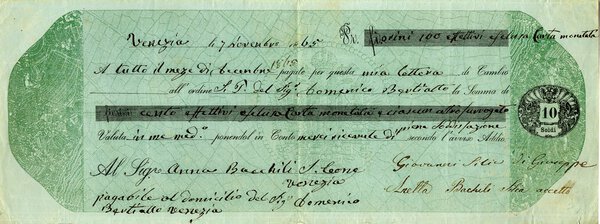 Venezia li 7 Novembre 1865 Px. fiorini 100 effettivi esclusa Carta monetata
A tutto il mese di Decembre 1865 pagate per questa mia lettera di Cambio
all'ordine S. P. del Sigr. Domenico Bertiatto la Somma di
fiorini cento effettivi esclusa Carta monetata e ciascun altro surrogato
Valuta in me med.o ponendol in Conto merci ricevute di piena soddisfazione secondo l'avviso Addio
10
Soldi
Al Sigra Anna Bachili S. Leone
Venezia
pagabile al domicilio del Sigr Domenico
Bertiatto Venezia
Giovanni di Giuseppe
Bachili accetto